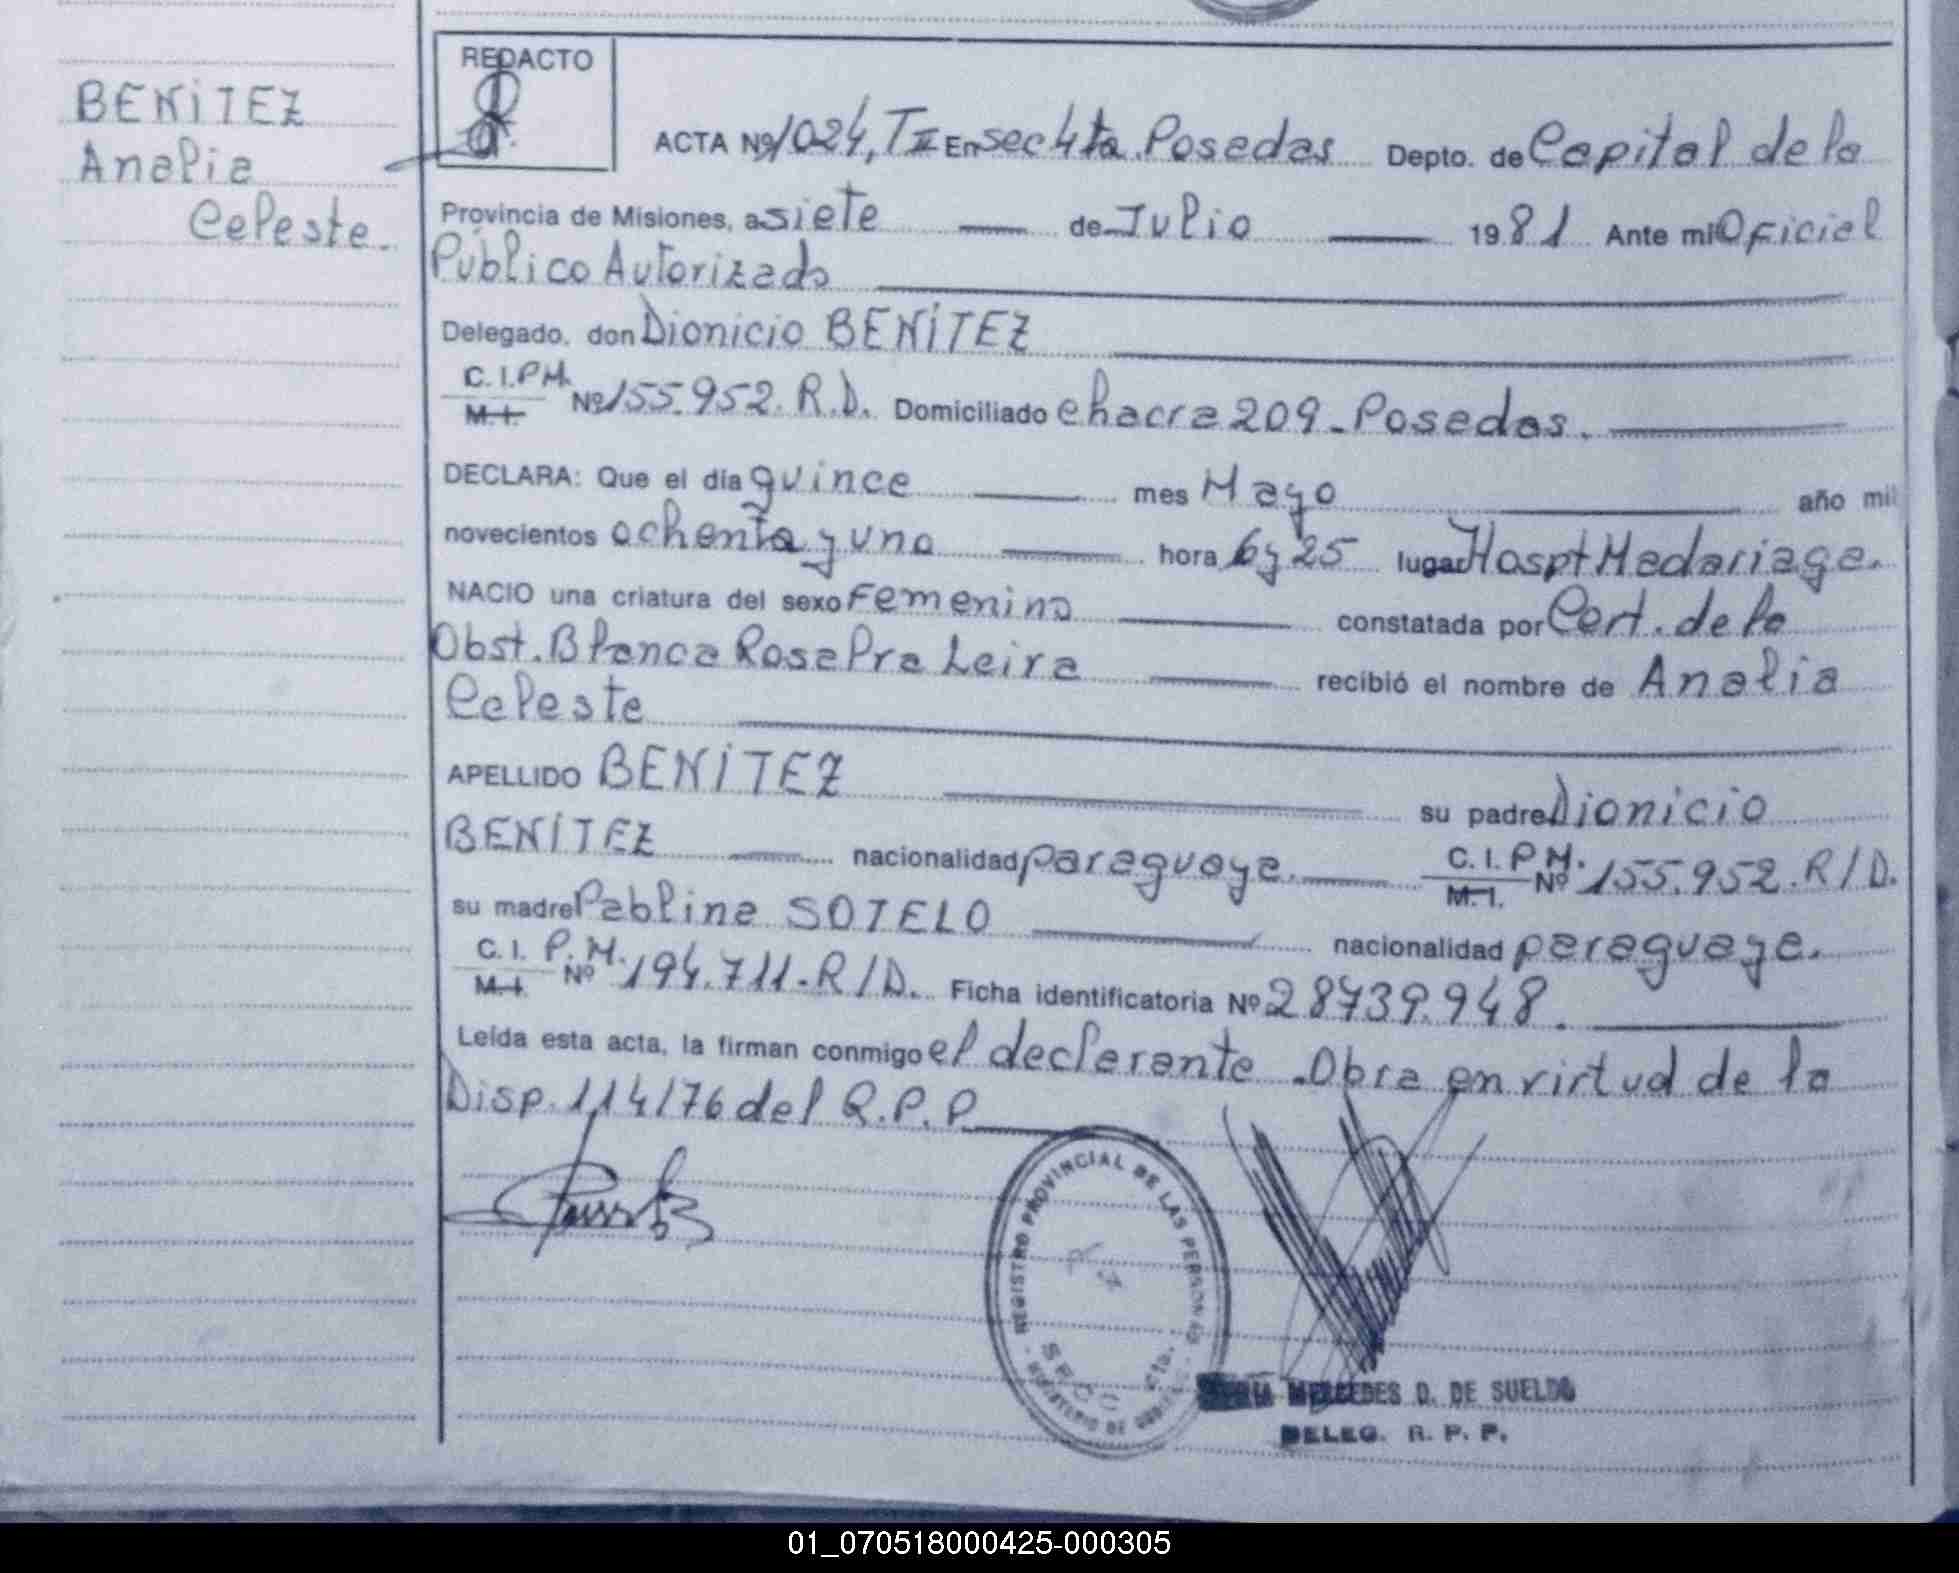 BENÍTEZ
Analia
Celeste.
REDACTO
ACTA Nº 1024, T II En sec 4ta. Posadas Depto. de Capital de la
Provincia de Misiones, a siete de Julio 1981 Ante mi Oficial
Público Autorizado
Delegado, don Dionicio BENÍTEZ
C.I.P.M.
M.I. Nº 155.952. R.D. Domiciliado Chacra 209 - Posadas.
DECLARA: Que el día quince mes Mayo año mil
novecientos ochenta y uno hora 6 y 25 lugar Hospt Madariaga.
NACIO una criatura del sexo Femenino constatada por Cert. de la
Obst. Blanca Rosa Pra Leira recibió el nombre de Analia
Celeste
APELLIDO BENÍTEZ su padre Dionicio
BENÍTEZ nacionalidad paraguaya. C.I.P.M. M.I. Nº 155.952. R/D.
su madre Pablina SOTELO nacionalidad paraguaya.
C.I. P.M. M.I. Nº 194.711. R/D. Ficha identificatoria Nº 28739.948.
Leída esta acta, la firman conmigo el declarante. Obra en virtud de la
Disp. 114/76 del R.P.P.
REGISTRO PROVINCIAL DE LAS PERSONAS
MINISTERIO DE
SECC 4ta.
MERCEDES D. DE SUELDO
DELEG. R. P. P.
01_070518000425-000305